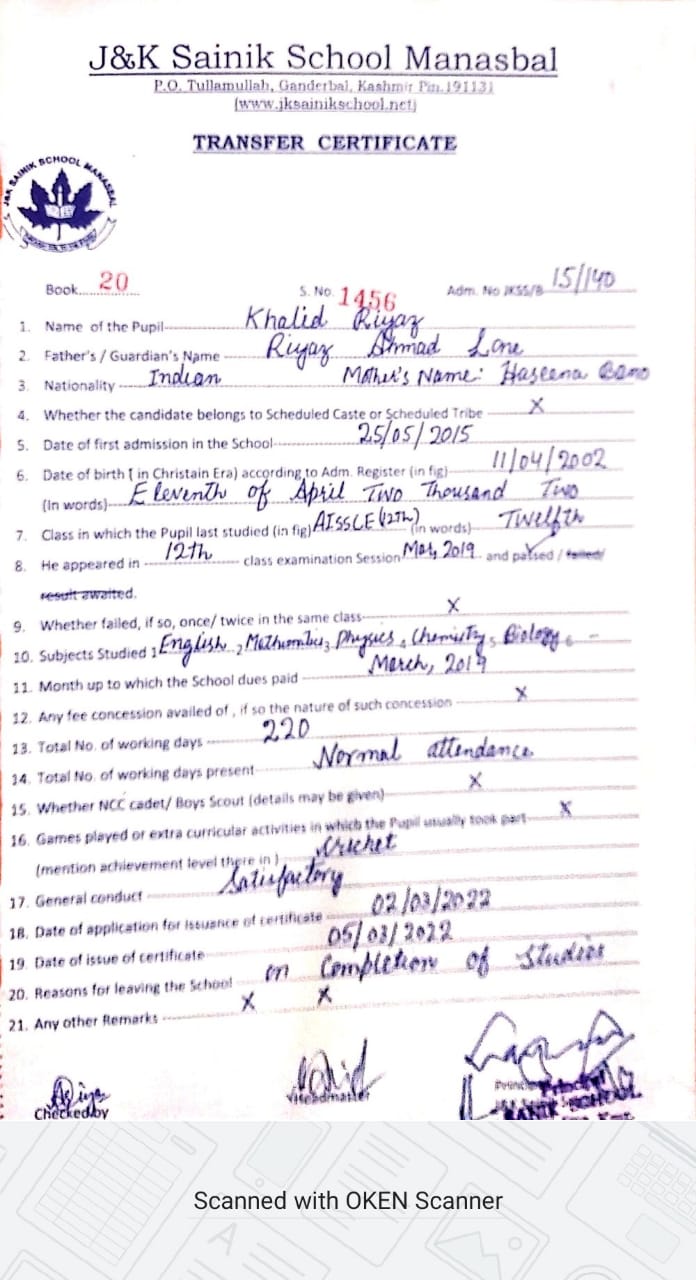 J&K Sainik School Manasbal
P.O. Tullamullah, Ganderbal, Kashmir Pin.191131
(www.jksainikschool.net)
TRANSFER CERTIFICATE
J&K SAINIK SCHOOL MANASBAL
Book 20 S. No. 1456 Adm. No JKSS/B 15/140
1. Name of the Pupil Khalid Riyaz
2. Father's / Guardian's Name Riyaz Ahmad Lone
3. Nationality Indian Mother's Name: Haseena Bano
4. Whether the candidate belongs to Scheduled Caste or Scheduled Tribe X
5. Date of first admission in the School 25/05/2015
6. Date of birth ( in Christain Era) according to Adm. Register (in fig) 11/04/2002
(In words) Eleventh of April Two Thousand Two
7. Class in which the Pupil last studied (in fig) AISSCE (12Th) (in words) Twelfth
8. He appeared in 12th class examination Session Mar, 2019 and passed / failed/
result awaited.
9. Whether failed, if so, once/ twice in the same class X
10. Subjects Studied 1 English, 2 Mathematics, 3 Physics, 4 Chemistry, 5 Biology, 6 -
11. Month up to which the School dues paid March, 2019
12. Any fee concession availed of , if so the nature of such concession X
13. Total No. of working days 220
14. Total No. of working days present Normal attendance
15. Whether NCC cadet/ Boys Scout (details may be given) X
16. Games played or extra curricular activities in which the Pupil usually took part X
(mention achievement level there in ) Cricket
17. General conduct Satisfactory
18. Date of application for issuance of certificate 02/03/2022
19. Date of issue of certificate 05/03/2022
20. Reasons for leaving the School on Completion of Studies
21. Any other Remarks X X
Checked by Principal
SAINIK SCHOOL
Scanned with OKEN Scanner